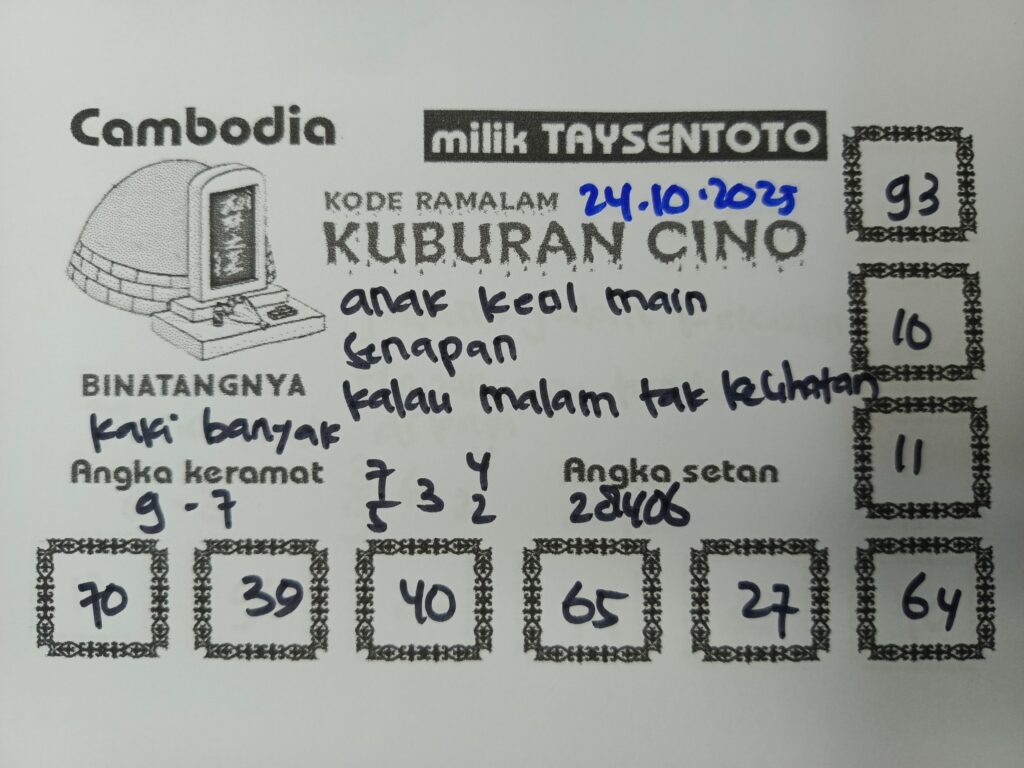 Cambodia
milik TAYSENTOTO
KODE RAMALAM 24.10.2025
KUBURAN CINO
93
anak kecil main
senapan
kalau malam tak kelihatan
10
BINATANGNYA
kaki banyak
11
Angka keramat
9 - 7
7 4
3
5 2
Angka setan
70 39 40 65 27 64